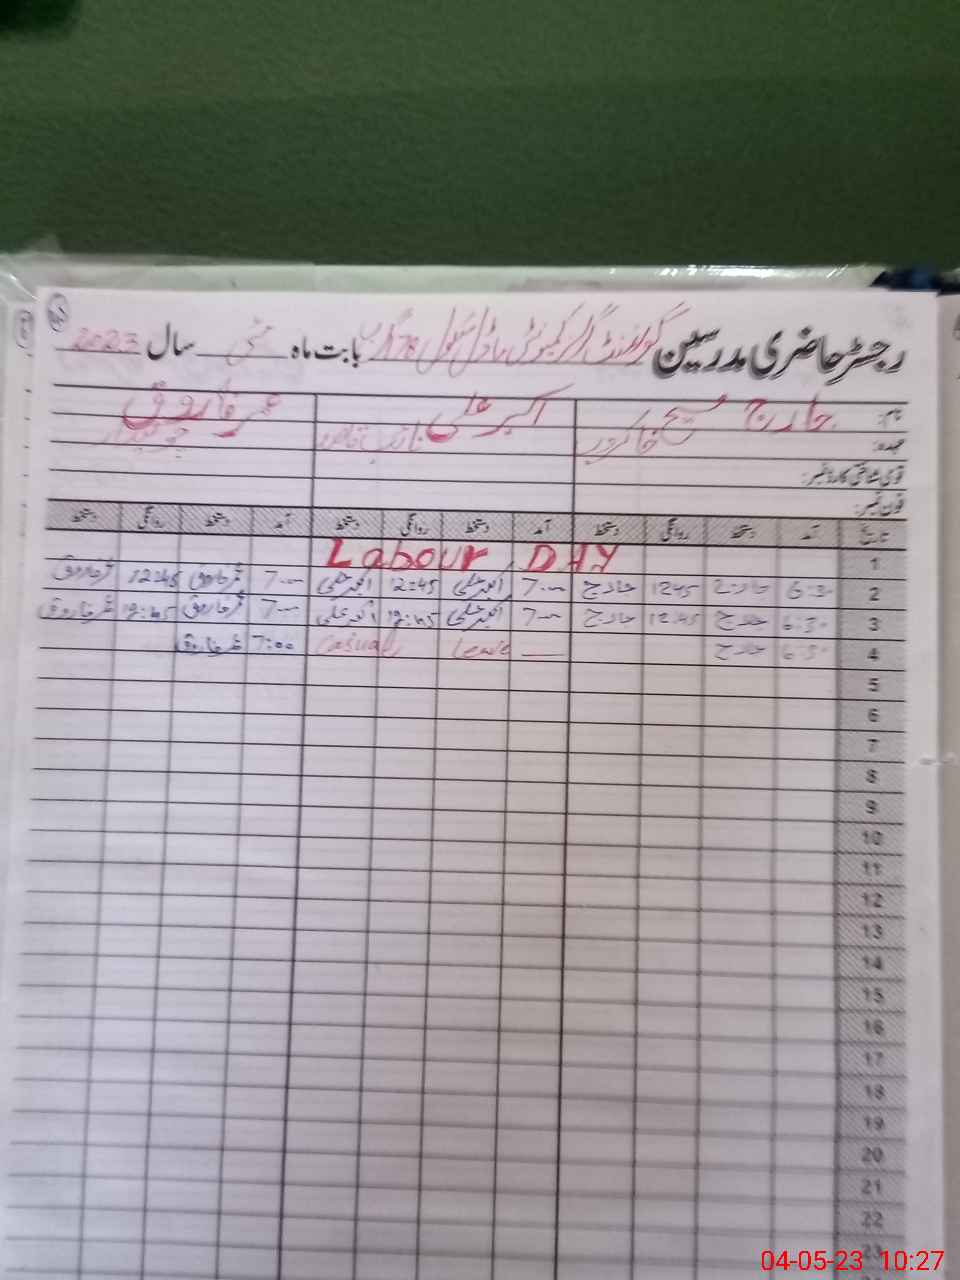 رجسٹر حاضری مدرسین گورنمنٹ گرلز کمیونٹی ماڈل سکول 78 گ ب بابت ماہ مئی سال 2023
نام: جارج مسیح اکبر علی عمر فاروق
عہدہ: خاکروب نائب قاصد چوکیدار
قومی شناختی کارڈ نمبر:
فون نمبر:
تاریخ آمد دستخط روانگی دستخط آمد دستخط روانگی دستخط آمد دستخط روانگی دستخط
1 Labour DAY
2 6:30 جارج 1245 جارج 7:00 اکبر علی 12:45 اکبر علی 7:00 عمر فاروق 12:45 عمر فاروق
3 6:30 جارج 12:45 جارج 7:00 اکبر علی 12:45 اکبر علی 7:00 عمر فاروق 12:45 عمر فاروق
4 6:30 جارج Casual Leave 7:00 عمر فاروق
5
6
7
8
9
10
11
12
13
14
15
16
17
18
19
20
21
22
23
04-05-23 10:27